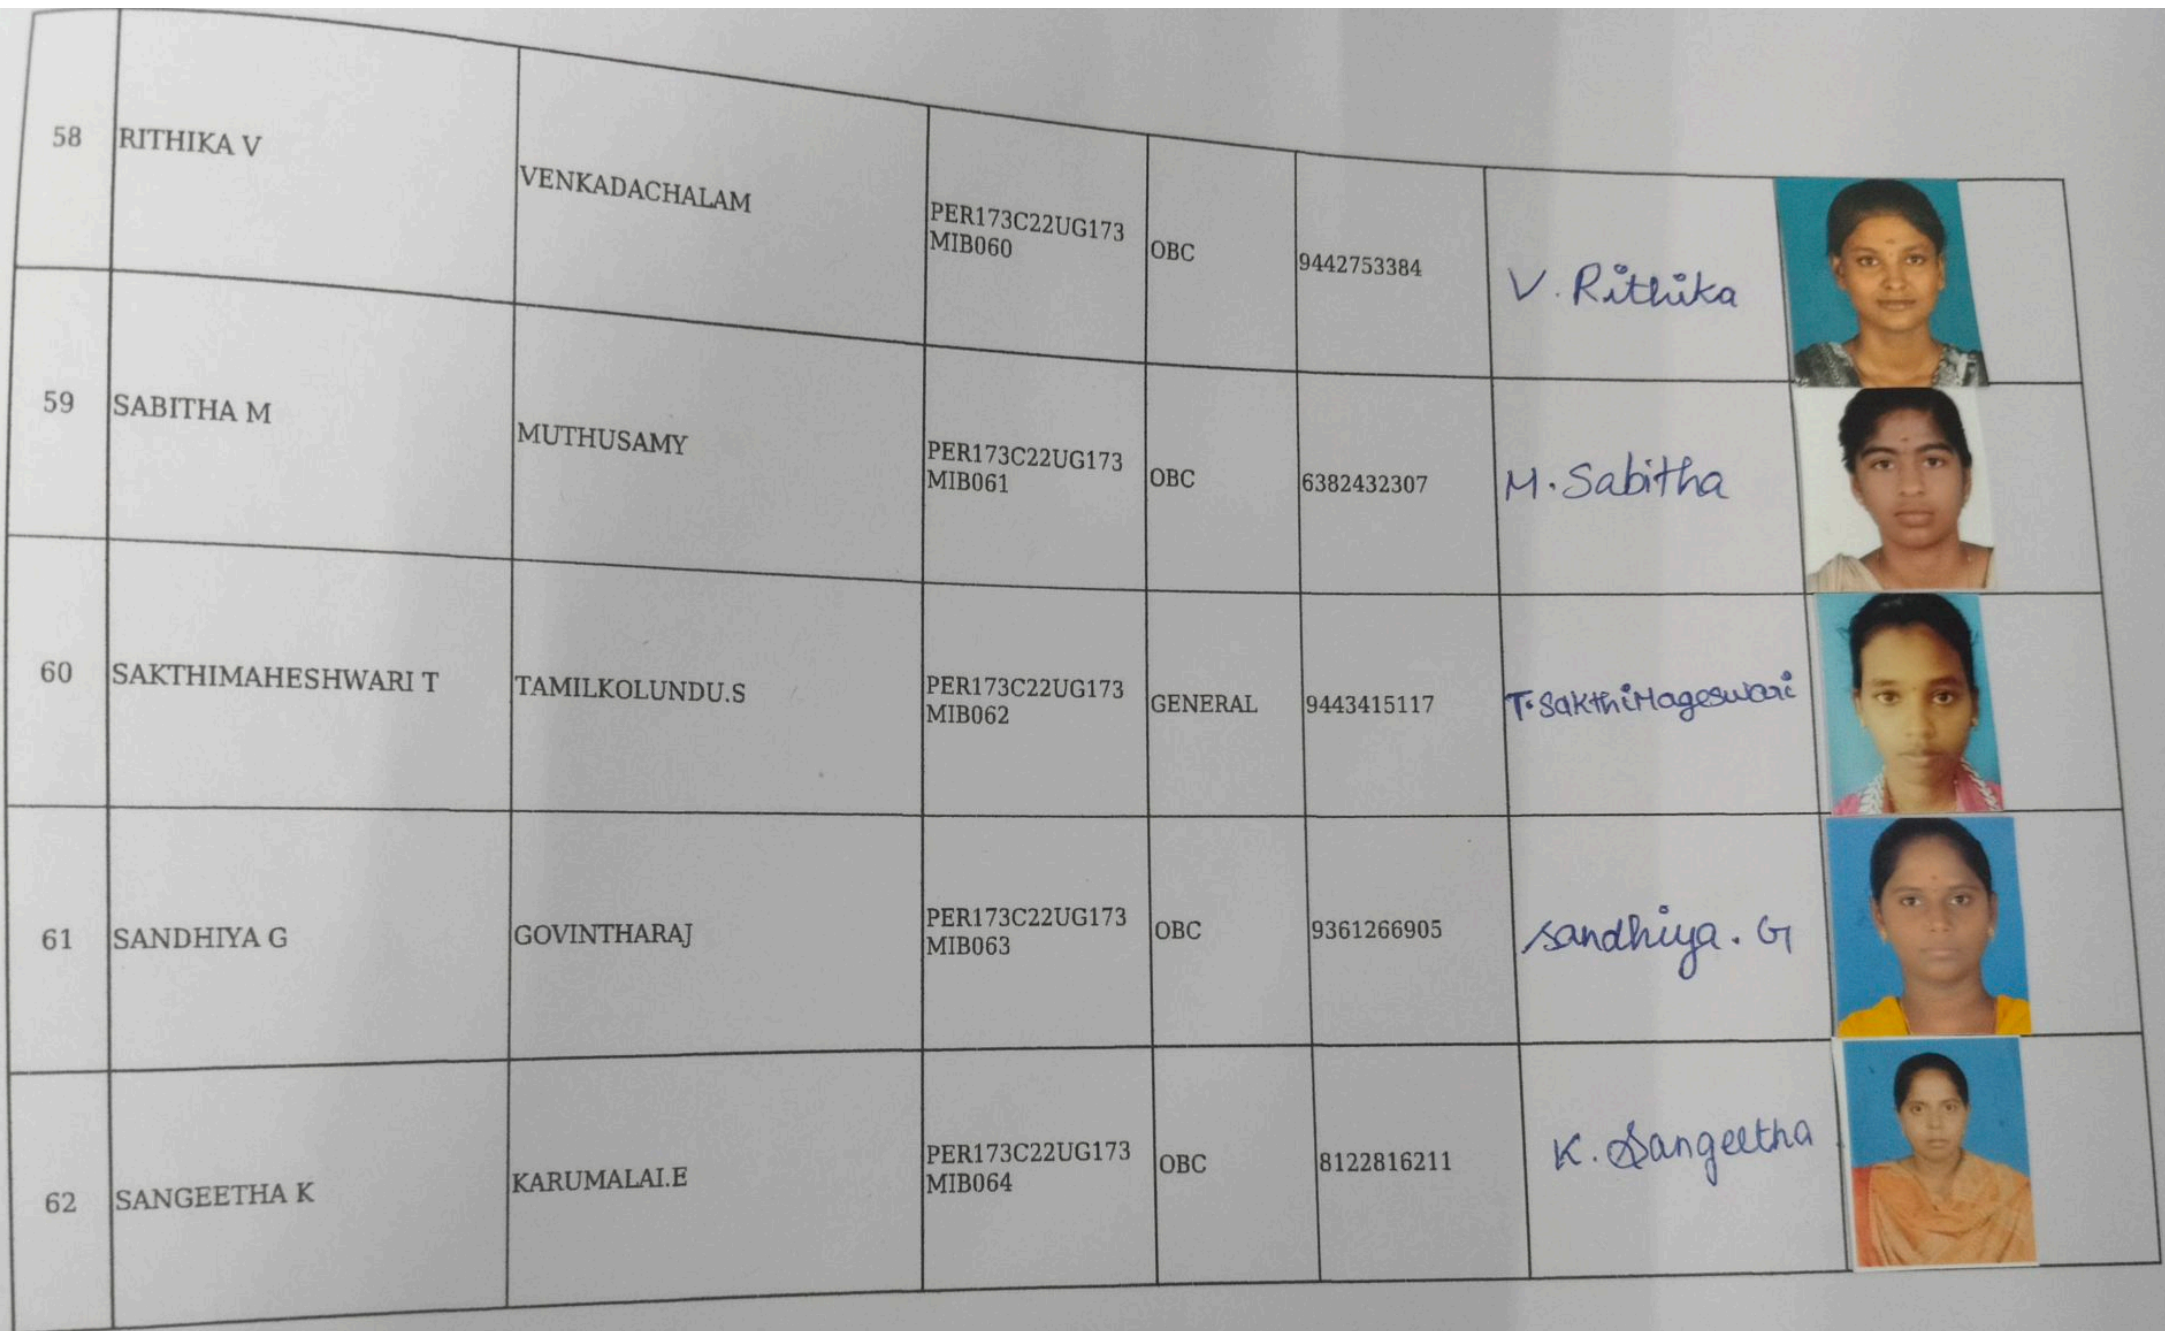 58 RITHIKA V VENKADACHALAM PER173C22UG173 OBC 9442753384 V. Rithika
MIB060
59 SABITHA M MUTHUSAMY PER173C22UG173 OBC 6382432307 M. Sabitha
MIB061
60 SAKTHIMAHESHWARI T TAMILKOLUNDU.S PER173C22UG173 GENERAL 9443415117 T. SakthiMageswari
MIB062
61 SANDHIYA G GOVINTHARAJ PER173C22UG173 OBC 9361266905 Sandhiya. G
MIB063
62 SANGEETHA K KARUMALAI.E PER173C22UG173 OBC 8122816211 K. Sangeetha
MIB064